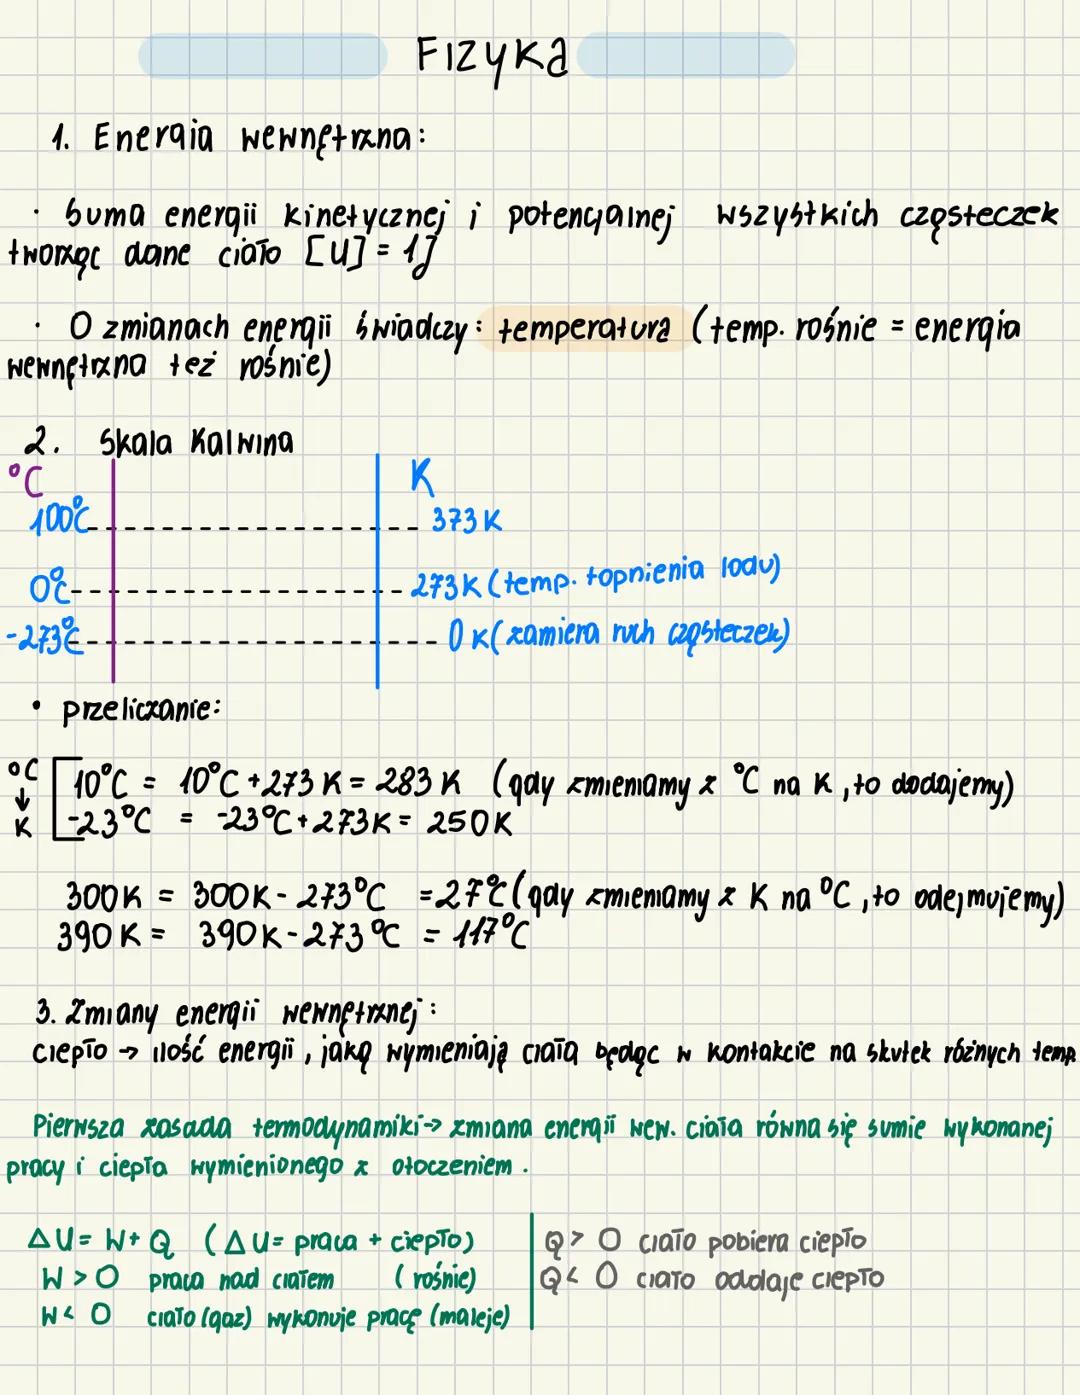 Fizyka
1. Energia wewnętrzna:
· Suma energii kinetycznej i potencjalnej wszystkich cząsteczek
tworząc dane ciało [U] = 1J
· O zmianach energii świadczy: temperatura (temp. rośnie = energia
wewnętrzna też rośnie)
2. Skala Kalwina
°C K
100°C 373 K
0°C 273 K (temp. topnienia lodu)
-273°C 0 K (zamiera ruch cząsteczek)
• przeliczanie:
°C ↓ K
10°C = 10°C + 273 K = 283 K (gdy zmieniamy z °C na K, to dodajemy)
-23°C = -23°C + 273K = 250K
300K = 300K - 273°C = 27°C (gdy zmieniamy z K na °C, to odejmujemy)
390 K = 390K - 273°C = 117°C
3. Zmiany energii wewnętrznej:
ciepło → ilość energii, jaką wymieniają ciała będąc w kontakcie na skutek różnych temp.
Pierwsza zasada termodynamiki → zmiana energii wew. ciała równa się sumie wykonanej
pracy i ciepła wymienionego z otoczeniem.
ΔU = W + Q (ΔU = praca + ciepło)
W > 0 praca nad ciałem (rośnie)
W < 0 ciało (gaz) wykonuje pracę (maleje)
Q > 0 ciało pobiera ciepło
Q < 0 ciało oddaje ciepło